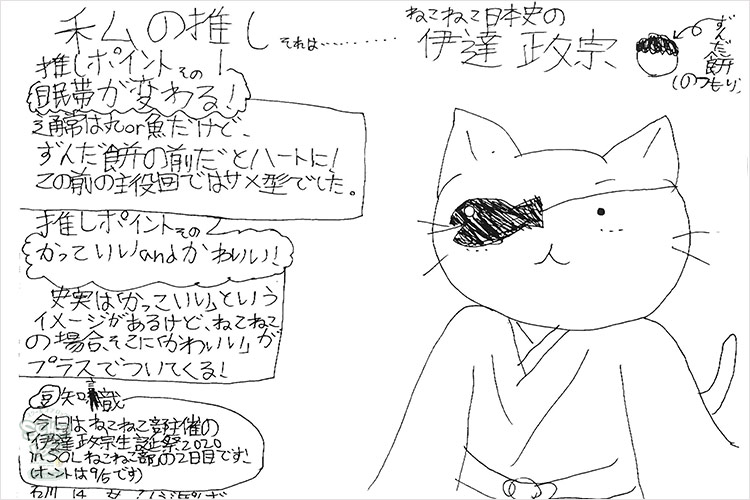 私の推し それは………
ねこねこ日本史の
伊達 政宗
ずんだ餅
(のつもり)
推しポイントその1
眼帯が変わる!
通常は丸or魚だけど、
ずんだ餅の前だとハートに!
この前の主役回ではサメ型でした。
推しポイントその
かっこいいandかわいい!
史実は「かっこいい」という
イメージがあるけど、ねこねこ
の場合、そこに「かわいい」が
プラスでついてくる!
豆知識
今日は、ねこねこ部主催の
「伊達政宗生誕祭2020
in SOLねこねこ部」の2日目です!
(ホントは9/5です)